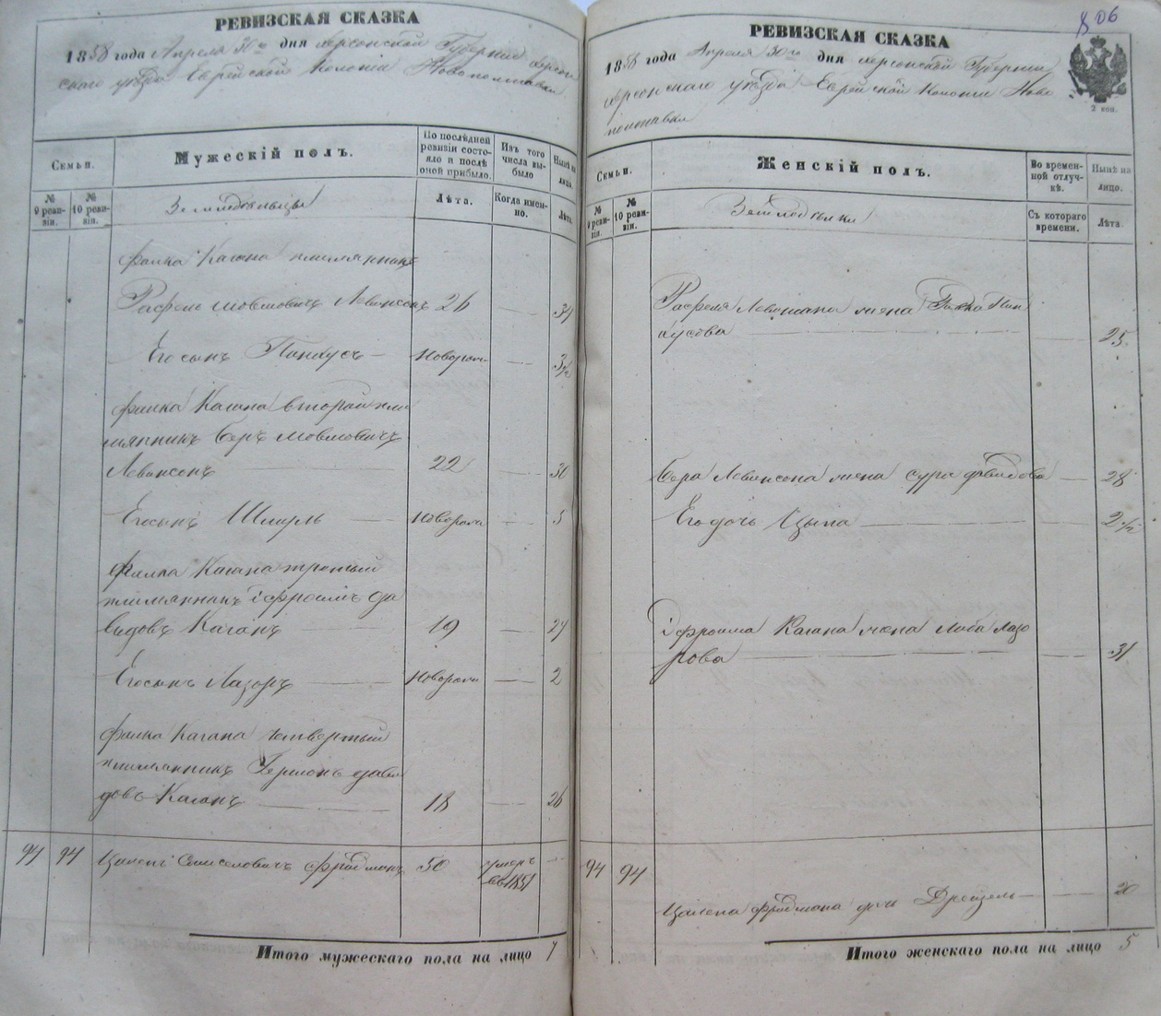 РЕВИЗСКАЯ СКАЗКА
1858 года Апреля 30го дня Херсонской Губернии Херсон
скаго уезда Еврейской Колонии Новополтавки
Семьи.
Мужескій полъ.
По послѣдней ревизіи состояло и послѣ оной прибыло.
Изъ того числа выбыло
Нынѣ на лицо.
№ 9 ревизіи.
№ 10 ревизіи.
Земледельцы
Лѣта.
Когда именно.
Лѣта.
Фалка Кагана племянник
Рафоель Мовшовичъ Левинсонъ 26 — 34
Его сынъ Панкусъ — Новорож — 3½
Фалка Кагана второй пле
мянникъ Беръ Мовшовичъ
Левинсонъ 22 — 30
Его сынъ Шмуль — Новорож — 5
Фалка Кагана третий
племянникъ Ефроимъ Да
видовъ Каганъ 19 — 27
Его сынъ Лазоръ — Новорож — 2
Фалка Кагана Четвертый
племянникъ Гершонъ Дави
довъ Каганъ 18 — 26
94 94 Цалель Фридманъ 50 умеръ въ 1851 —
Итого мужескаго пола на лицо 7
806
РЕВИЗСКАЯ СКАЗКА
1858 года Апреля 30го дня Херсонской Губернии
Херсонскаго уезда Еврейской Колонии Ново
полтавки
2 коп.
Семьи.
Женскій полъ.
Во временной отлучкѣ.
Нынѣ на лицо.
№ 9 ревизіи.
№ 10 ревизіи.
Земледелки
Съ котораго времени.
Лѣта.
Рафоеля Левинсона жена Пин
кусова — 25
Бера Левинсона жена Сура Давидова — 28
Его дочь Цыпа — 2½
Ефроима Кагана жена Либа Лазо
рова — 31
94 94
Цалеля Фридмана дочь Дрейзель — 20
Итого женскаго пола на лицо 5